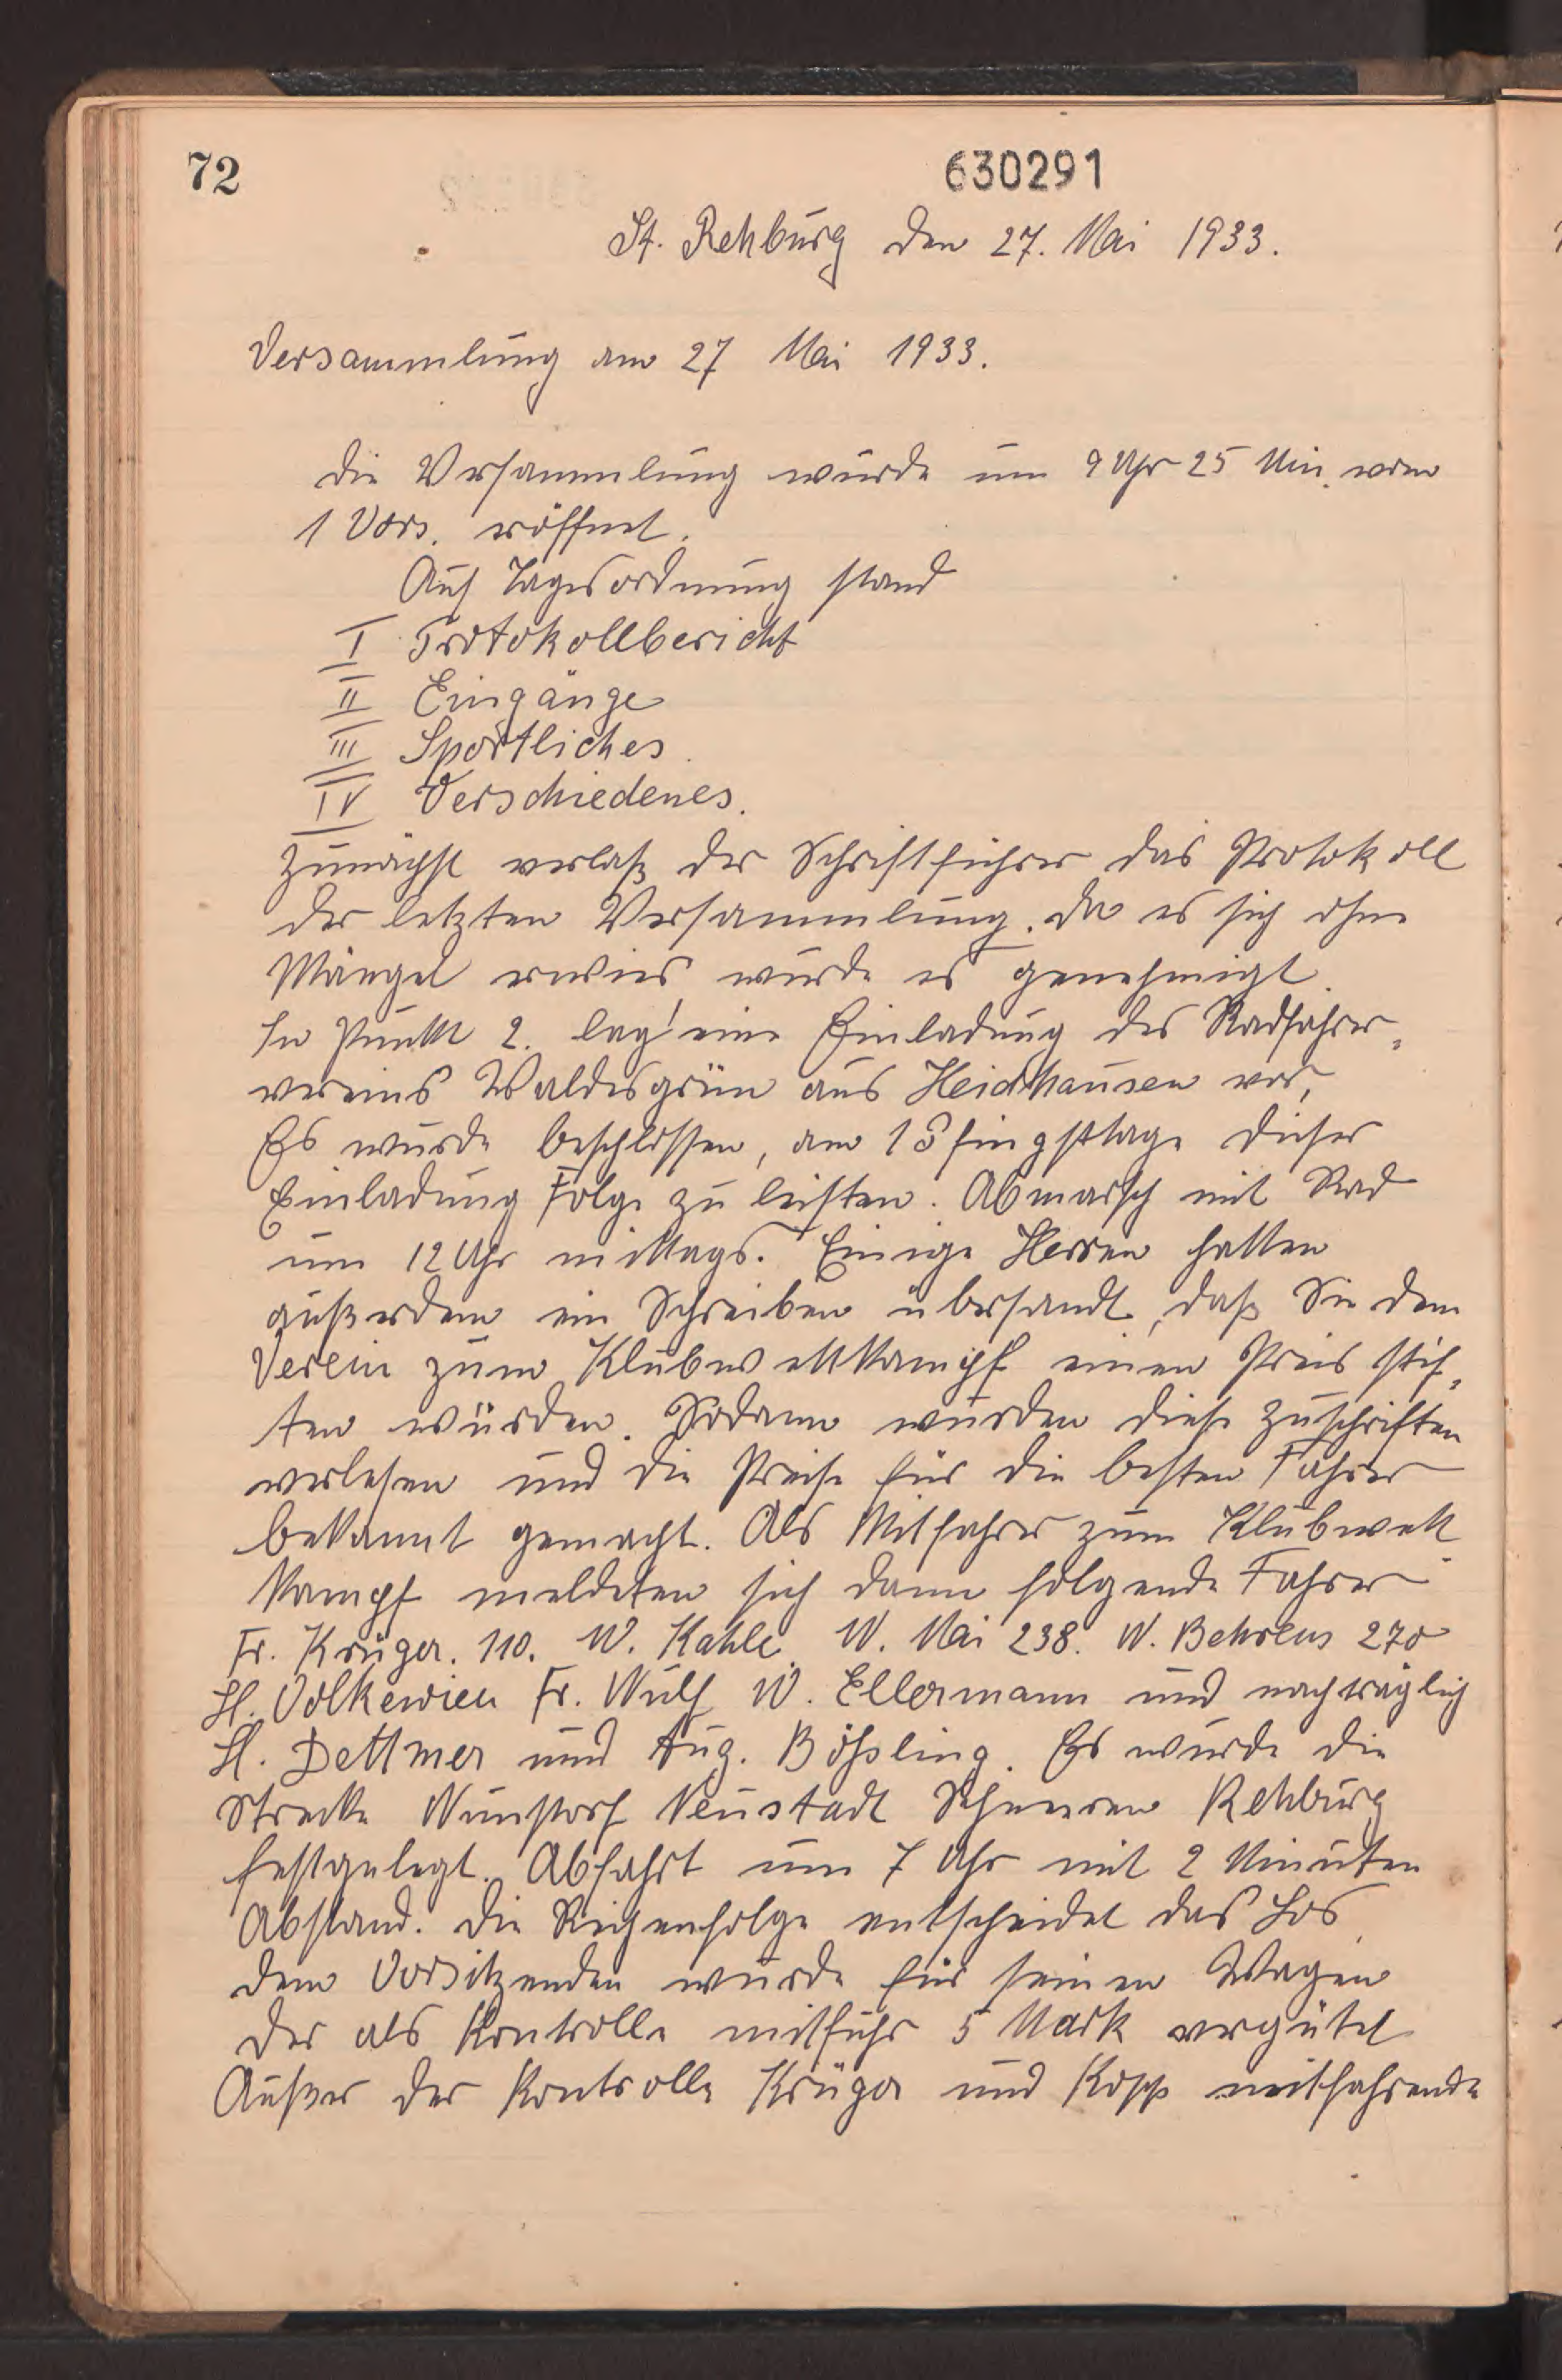 72
630291
St. Rehburg den 27. Mai 1933.
Versammlung am 27 Mai 1933.
Die Versammlung wurde um 9 Uhr 25 Min. vom
1 Vors. eröffnet.
Auf Tagesordnung stand
I Protokollbericht
II Eingänge
III Sportliches.
IV Verschiedenes.
Zunächst verlaß der Schriftführer das Protokoll
der letzten Versammlung. Da es sich ohne
Mängel erwies wurde es genehmigt.
In Punkt 2. lag eine Einladung des Radfahrer-
vereins Waldesgrün aus Heidhausen vor,
Es wurde beschlossen, am 1 Pfingsttage dieser
Einladung Folge zu leisten. Abmarsch mit Rad
um 12 Uhr mittags. Einige Herren hatten
außerdem ein Schreiben übersandt, daß Sie dem
Verein zum Klubwettkampf einen Preis stif-
ten würden. Sodann wurden diese Zuschriften
verlesen und die Preise für die besten Fahrer
bekannt gemacht. Als Mitfahrer zum Klubwett-
kampf meldeten sich dann folgende Fahrer
Fr. Krüger. 110. W. Kahle. W. Mai 238. W. Behrens 270
H. Volkewien Fr. Wulf W. Ellermann und nachträglich
H. Dettmer und Aug. Bößling. Es wurde die
Strecke Wunstorf Neustadt Schneeren Rehburg
festgelegt. Abfahrt um 7 Uhr mit 2 Minuten
Abstand. Die Reihenfolge entscheidet das Los.
Dem Vorsitzenden wurde für seinen Wagen
der als Kontrolle mitfuhr 5 Mark vergütet
Außer der Kontrolle Krüger und Kopp mitfahrende